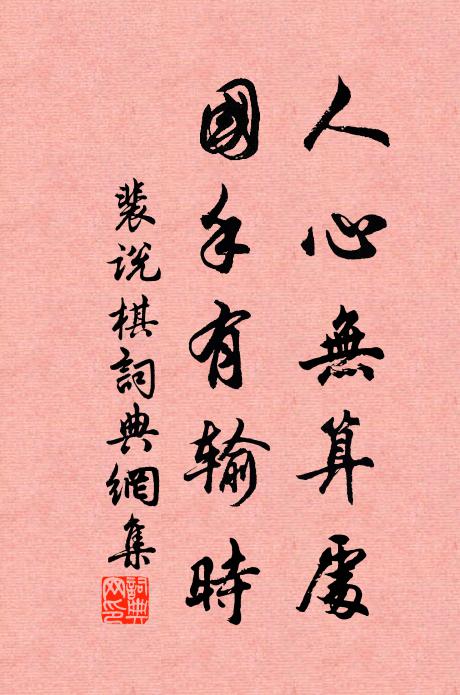 人心無算處
國手有輸時
裴説棋詞典網集
詞典網印